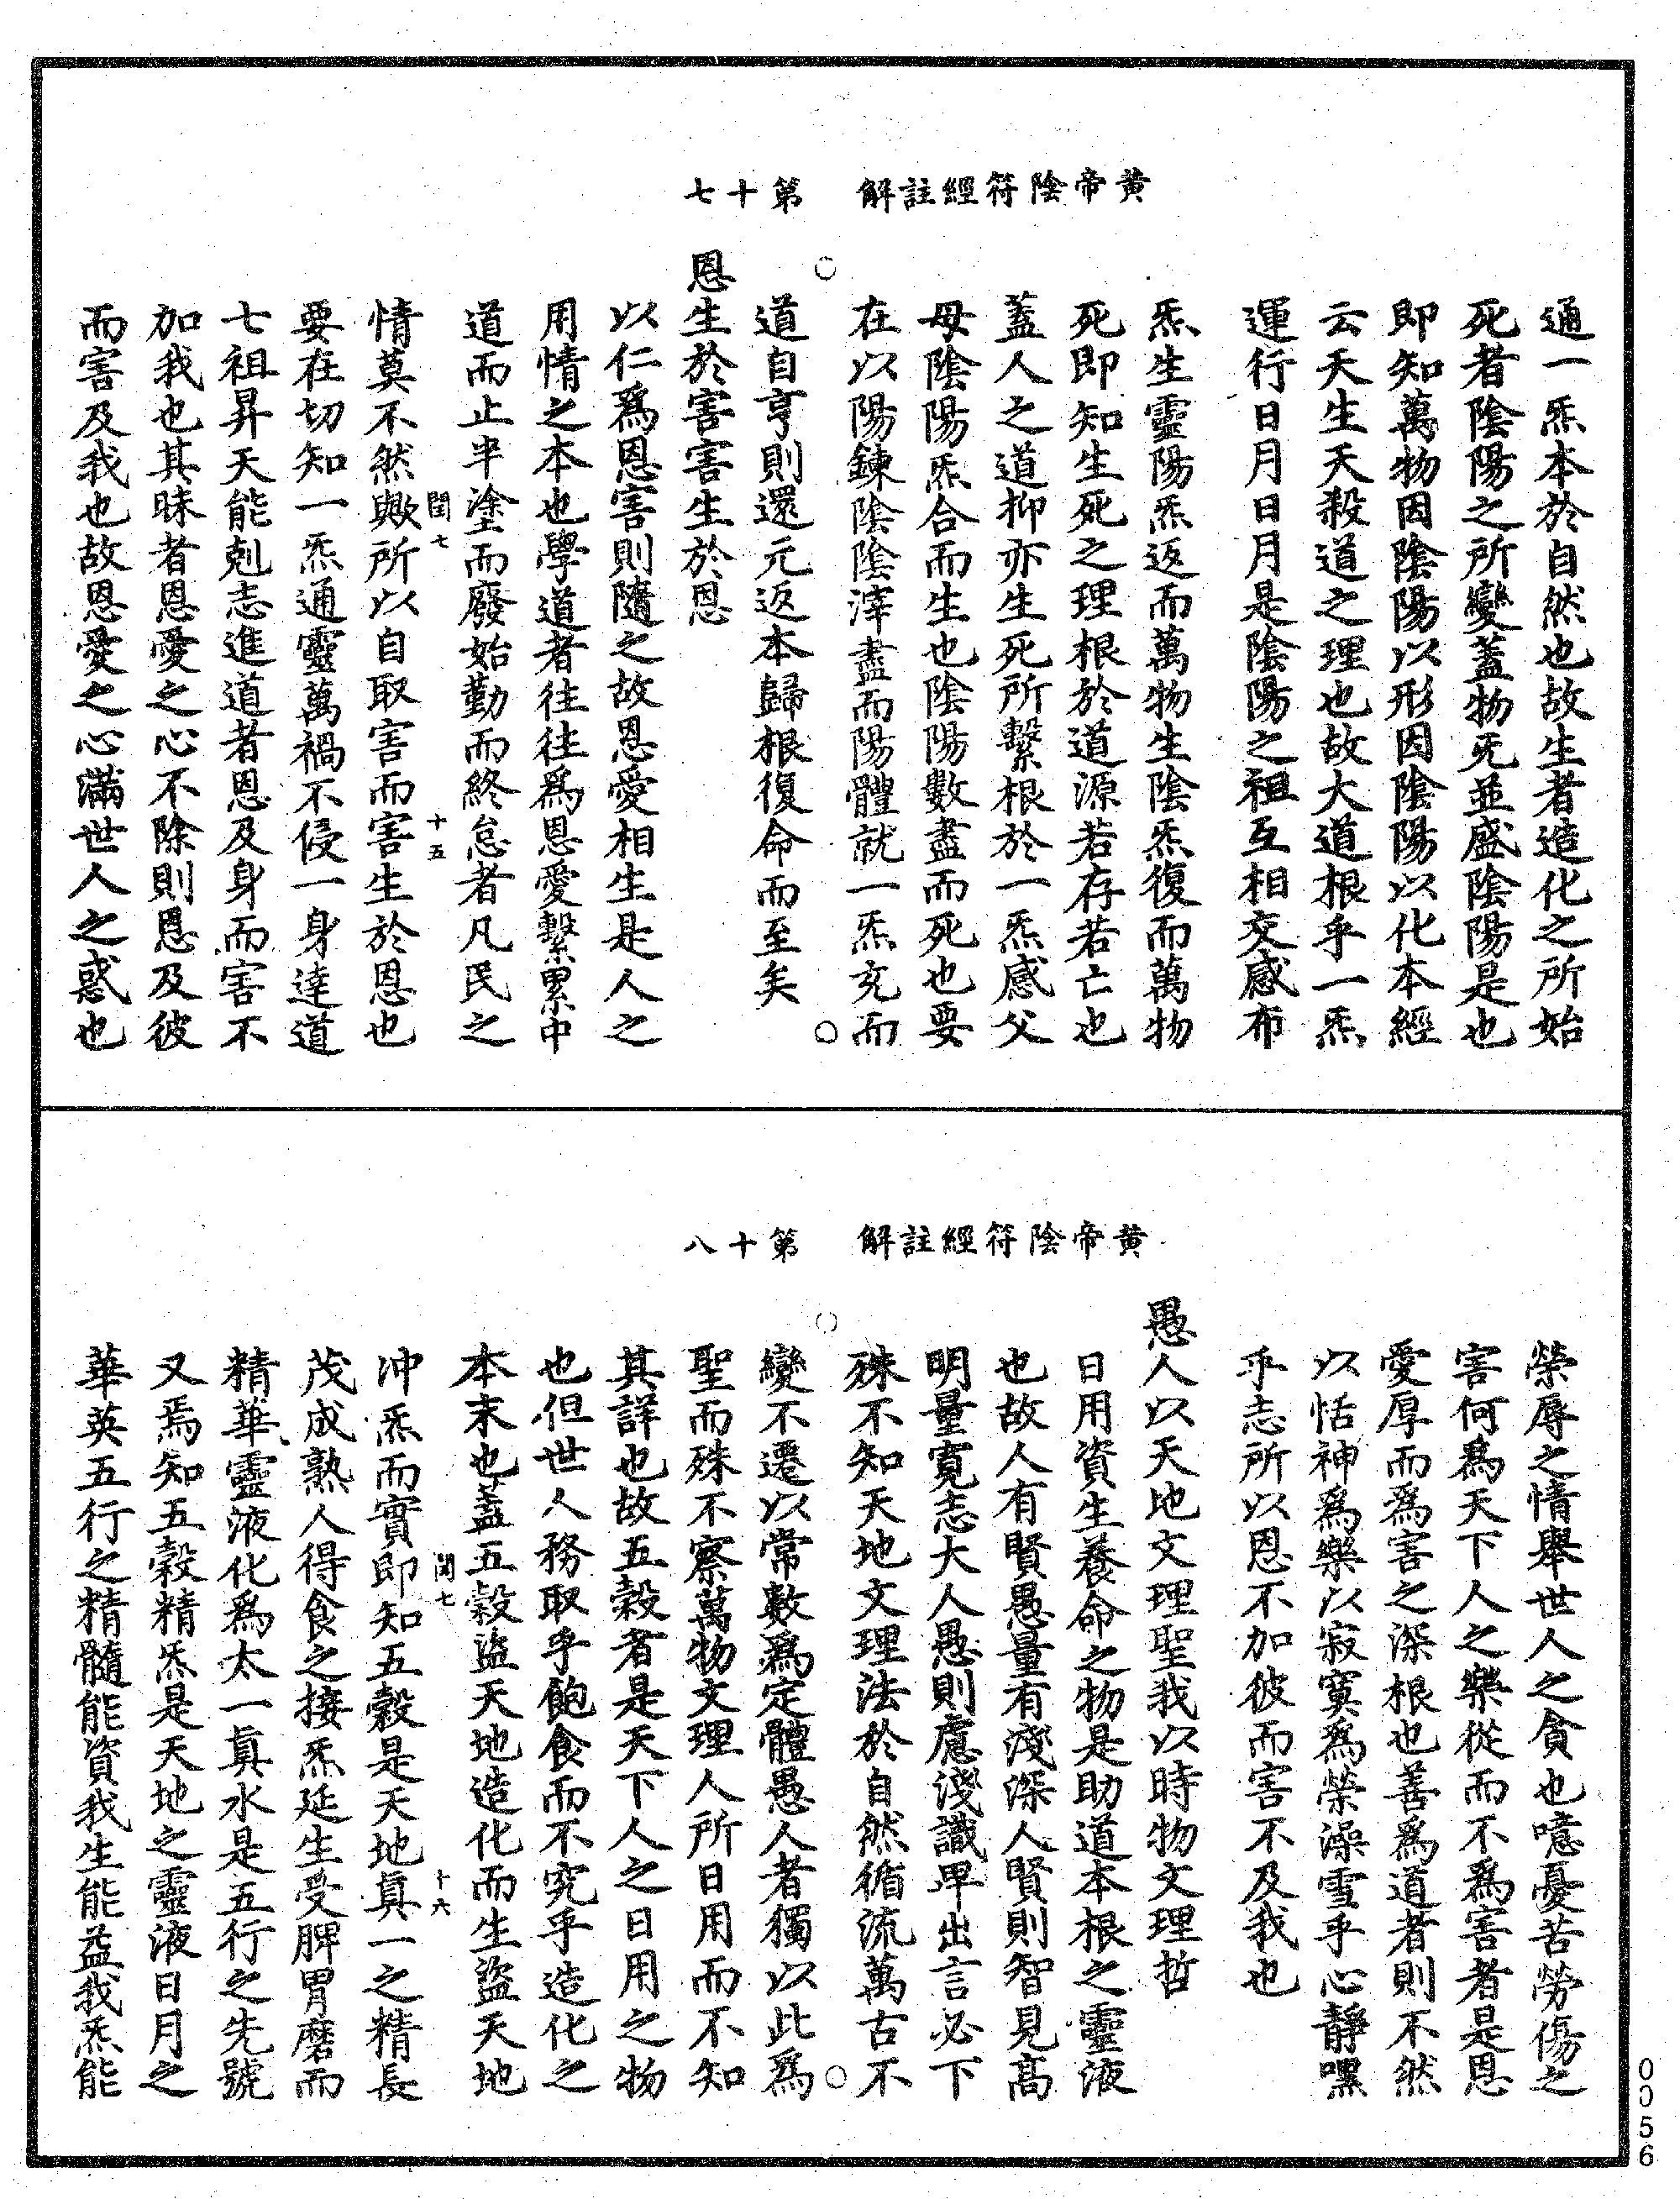 黄帝陰符經註解　第十七
通一炁本於自然也故生者造化之所始
死者陰陽之所變蓋物旡並盛陰陽是也
即知萬物因陰陽以形因陰陽以化本經
云天生天殺道之理也故大道根乎一炁
運行日月日月是陰陽之祖互相交感布
炁生靈陽炁返而萬物生陰炁復而萬物
死即知生死之理根於道源若存若亡也
蓋人之道抑亦生死所繫根於一炁感父
母陰陽炁合而生也陰陽數盡而死也要
在以陽鍊陰陰滓盡而陽體就一炁充而
道自亨則還元返本歸根復命而至矣
恩生於害害生於恩
以仁爲恩害則隨之故恩愛相生是人之
用情之本也學道者往往爲恩愛繫累中
道而止半塗而廢始勤而終怠者凡民之
閏七　十五
情莫不然歟所以自取害而害生於恩也
要在切知一炁通靈萬禍不侵一身達道
七祖昇天能剋志進道者恩及身而害不
加我也其昧者恩愛之心不除則恩及彼
而害及我也故恩愛之心滿世人之惑也
黄帝陰符經註解　第十八
榮辱之情舉世人之貪也噫憂苦勞傷之
害何爲天下人之樂從而不爲害者是恩
愛厚而爲害之深根也善爲道者則不然
以恬神爲樂以寂寞爲榮澡雪乎心靜嘿
乎志所以恩不加彼而害不及我也
愚人以天地文理聖我以時物文理哲
日用資生養命之物是助道本根之靈液
也故人有賢愚量有淺深人賢則智見高
明量寬志大人愚則慮淺識卑出言必下
殊不知天地文理法於自然循流萬古不
變不遷以常數爲定體愚人者獨以此爲
聖而殊不察萬物文理人所日用而不知
其詳也故五穀者是天下人之日用之物
也但世人務取乎飽食而不究乎造化之
本末也蓋五穀盜天地造化而生盜天地
閏七　十六
冲炁而實即知五穀是天地真一之精長
茂成熟人得食之接炁延生受脾胃磨而
精華靈液化爲太一真水是五行之先號
又焉知五穀精炁是天地之靈液日月之
華英五行之精髓能資我生能益我炁能
0056